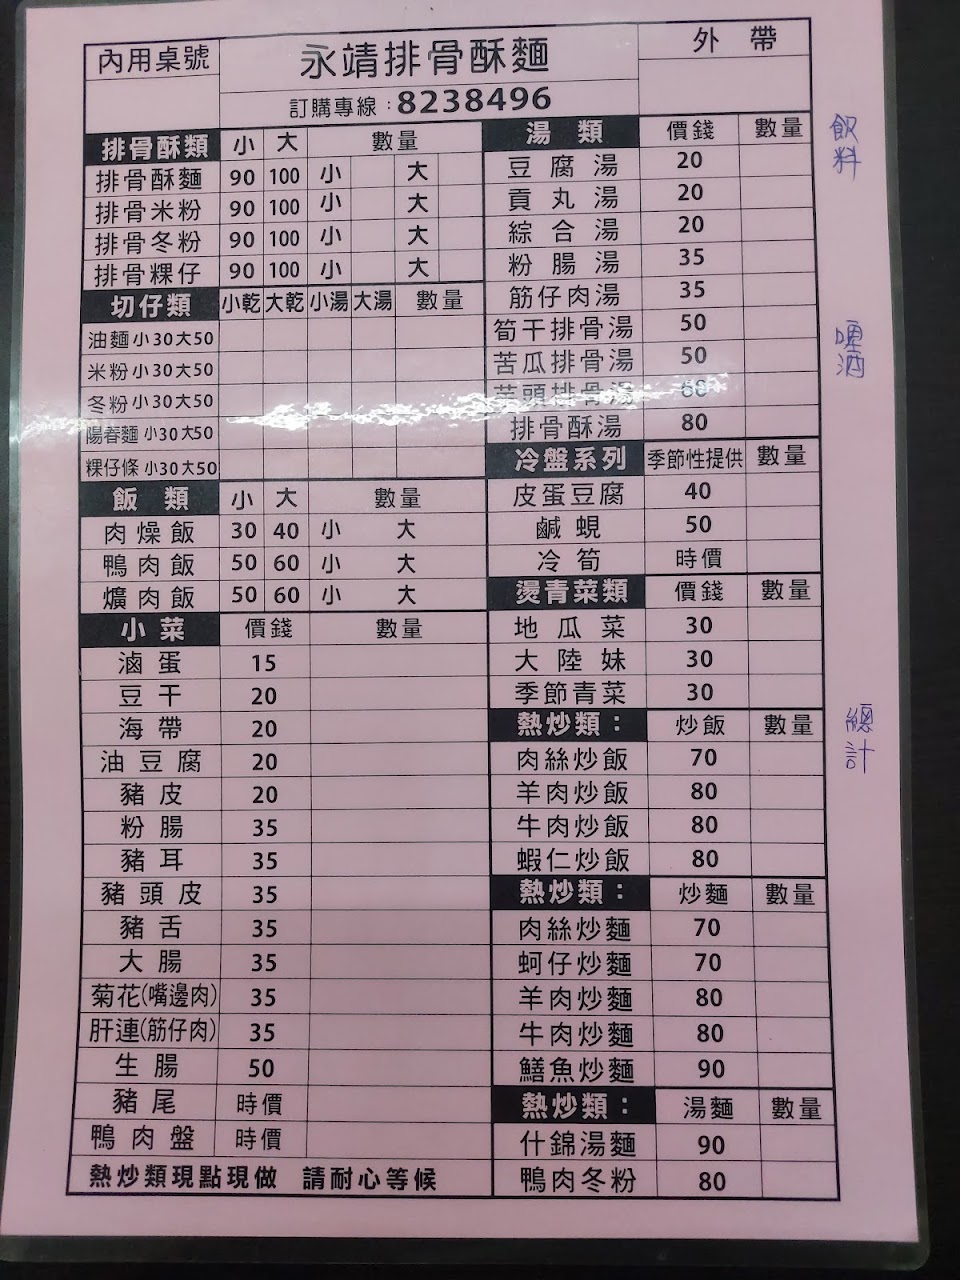 內用桌號
永靖排骨酥麵
訂購專線：8238496
外 帶
排骨酥類 小 大 數量
排骨酥麵 90 100 小 大
排骨米粉 90 100 小 大
排骨冬粉 90 100 小 大
排骨粿仔 90 100 小 大
切仔類 小乾 大乾 小湯 大湯 數量
油麵 小30大50
米粉 小30大50
冬粉 小30大50
陽春麵 小30大50
粿仔條 小30大50
飯 類 小 大 數量
肉燥飯 30 40 小 大
鴨肉飯 50 60 小 大
爌肉飯 50 60 小 大
小 菜 價錢 數量
滷蛋 15
豆干 20
海帶 20
油豆腐 20
豬皮 20
粉腸 35
豬耳 35
豬頭皮 35
豬舌 35
大腸 35
菊花(嘴邊肉) 35
肝連(筋仔肉) 35
生腸 50
豬尾 時價
鴨肉盤 時價
熱炒類現點現做 請耐心等候
湯 類 價錢 數量
豆腐湯 20
貢丸湯 20
綜合湯 20
粉腸湯 35
筋仔肉湯 35
筍干排骨湯 50
苦瓜排骨湯 50
芋頭排骨湯
排骨酥湯 80
冷盤系列 季節性提供 數量
皮蛋豆腐 40
鹹蜆 50
冷筍 時價
燙青菜類 價錢 數量
地瓜菜 30
大陸妹 30
季節青菜 30
熱炒類： 炒飯 數量
肉絲炒飯 70
羊肉炒飯 80
牛肉炒飯 80
蝦仁炒飯 80
熱炒類： 炒麵 數量
肉絲炒麵 70
蚵仔炒麵 70
羊肉炒麵 80
牛肉炒麵 80
鱔魚炒麵 90
熱炒類： 湯麵 數量
什錦湯麵 90
鴨肉冬粉 80
飲料
啤酒
總計